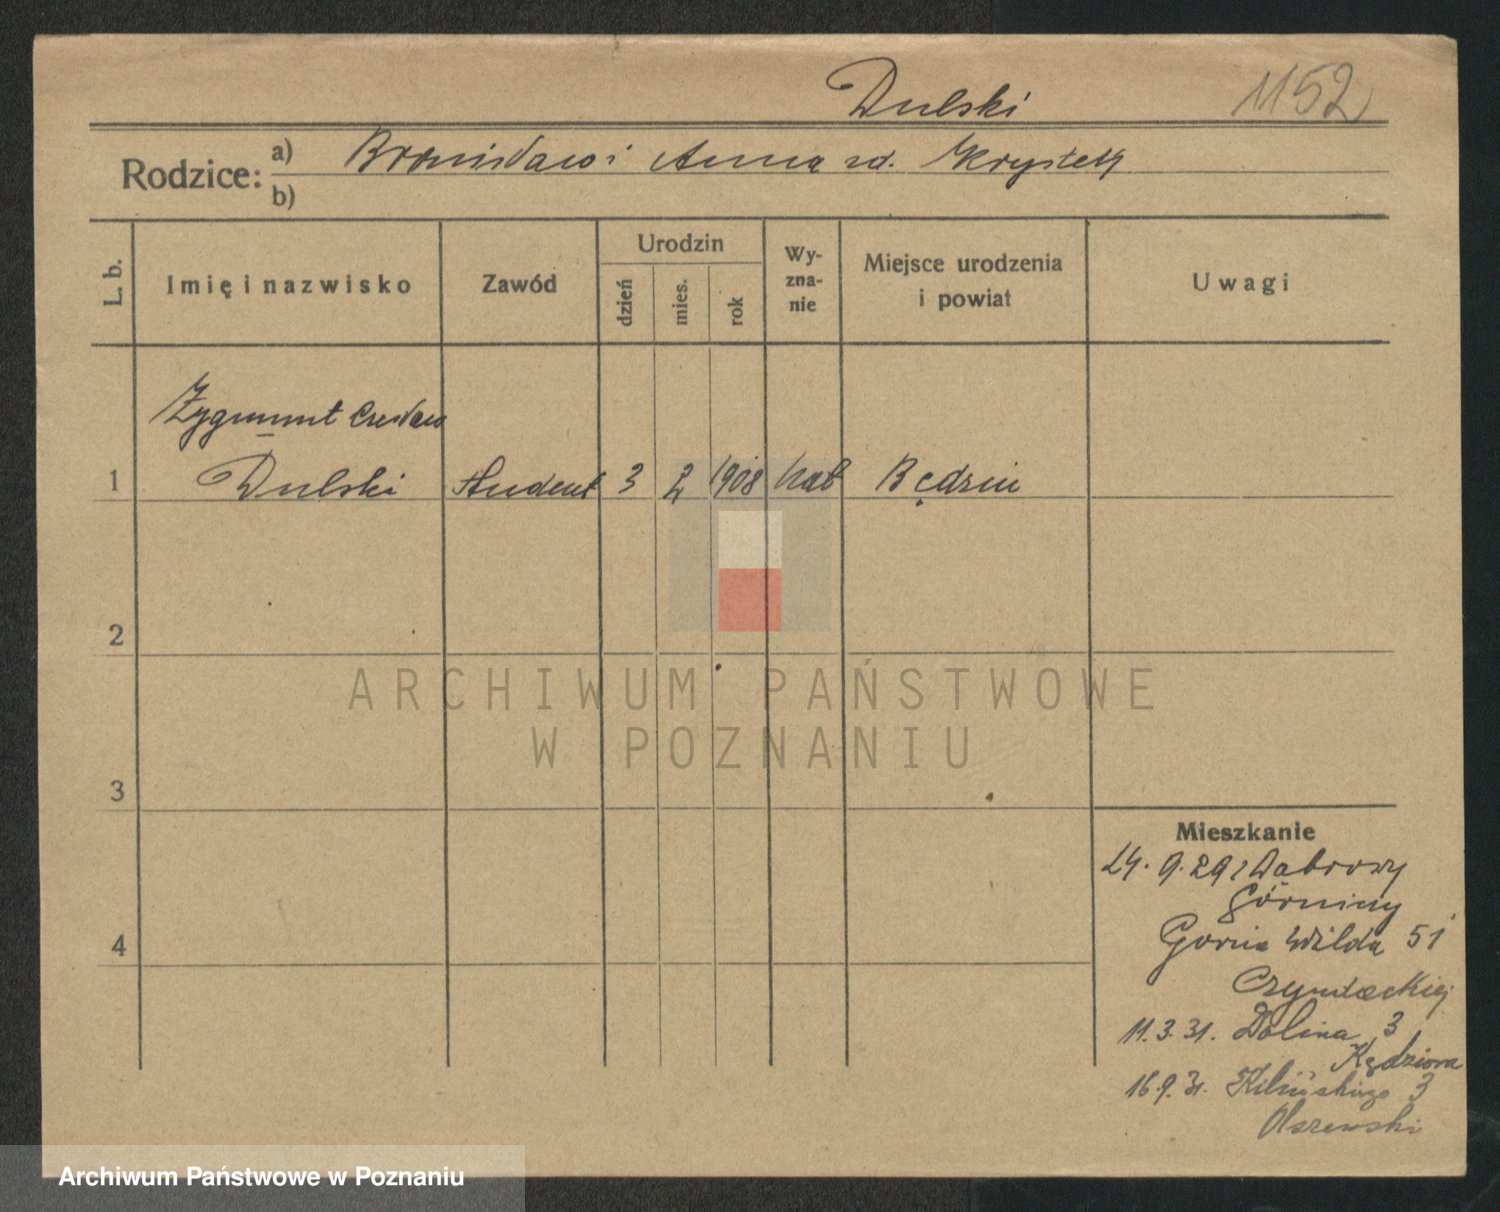 Dulski
1152
Rodzice: a) Bronisław i Anna zd. Krystek
b)
L. b.
Imię i nazwisko
Zawód
Urodzin
dzień
mies.
rok
Wy-
zna-
nie
Miejsce urodzenia
i powiat
Uwagi
Zygmunt Czesław
1 Dulski Student 3 2 1908 kat Będzin
2
ARCHIWUM PAŃSTWOWE
W POZNANIU
3
Mieszkanie
24. 9. 29 z Dąbrowy
Górniczy
4
Górna Wilda 51
11. 3. 31. Dolina 3
Kędziora
16. 9. 31. Kilińskiego 3
Olszewski
Archiwum Państwowe w Poznaniu